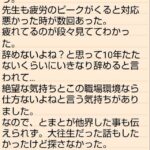 。
先生も疲労のピークがくると対応
悪かった時が数回あった。
疲れてるのが段々見てわかっ
た。
辞めないよね？と思って10年たた
ないくらいにいきなり辞めると言
われて…
絶望な気持ちとこの職場環境なら
仕方ないよねと言う気持ちがあり
ました。
なので、とまとが他界した事も伝
えられず。大往生だった話もした
かったけど探さなかった。